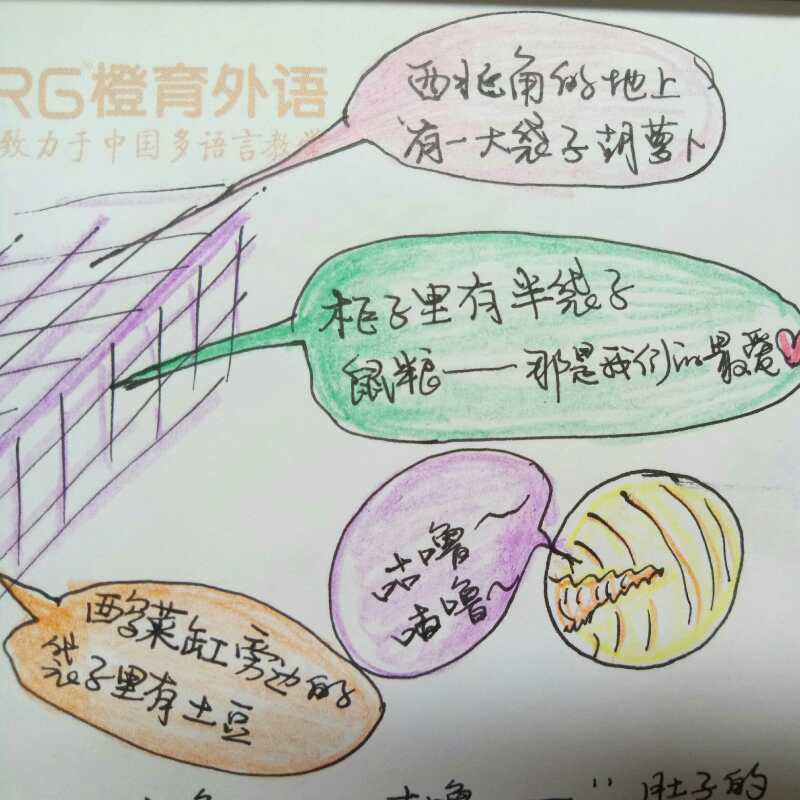 RG橙育外语
致力于中国多语言教学
西北角的地上
有一大袋子胡萝卜
柜子里有半袋子
鼠粮——那是我们的最爱
咕噜~
咕噜~
酸菜缸旁边的
袋子里有土豆
肚子的